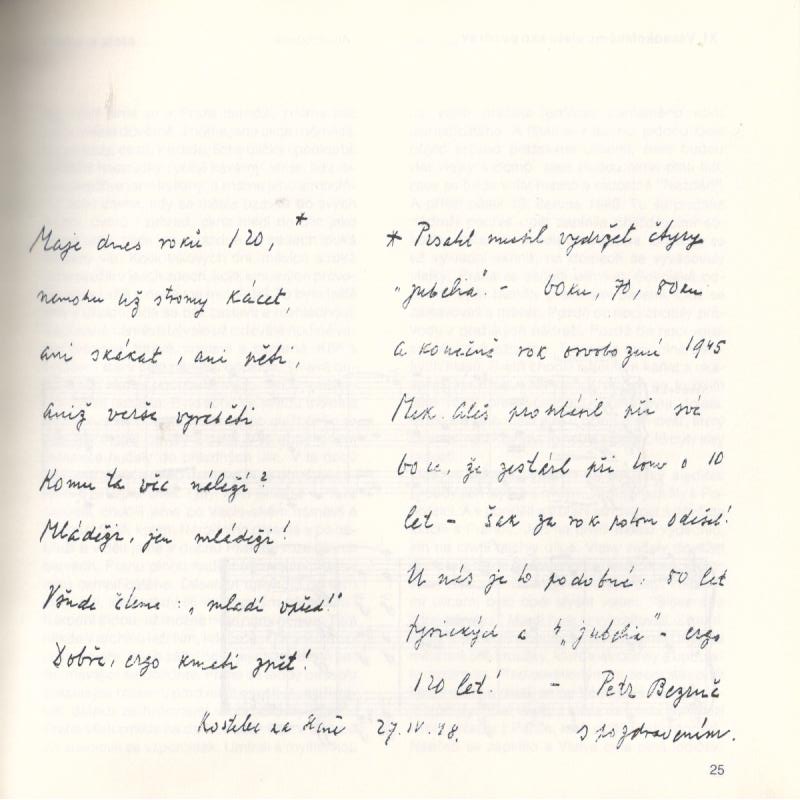 Maje dnes roků 120, *
nemohu už stromy kácet,
ani skákat, ani pěti,
aniž verše vyráběti
Komu ta věc náleží?
Mládeži, jen mládeži!
Všude čteme: „mladí vpřed!"
Dobře, ergo kmeti zpět!
Kostelec na Hané 27.IV.48.
* Pisatel musil vydržet čtyry
„jubelia". - 60ku, 70, 80ku
a konečně rok osvobození 1945
Mik. Aleš prohlásil při své
60ce, že zestárl při tom o 10
let - šak za rok potom odešel!
U nás je to podobné: 80 let
fysických a 4 „jubelia" - ergo
120 let! - Petr Bezruč
s pozdravením.
25